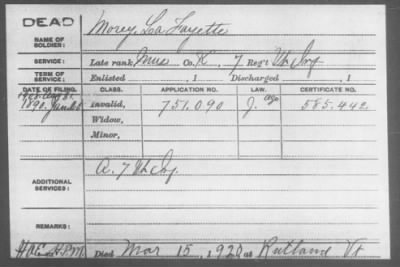 DEAD
NAME OF SOLDIER: Morey, La Fayette
SERVICE: Late rank, Mus Co. K, 7 Reg't Vt Inf
TERM OF SERVICE: Enlisted , 1 Discharged , 1
DATE OF FILING. CLASS. APPLICATION NO. LAW. CERTIFICATE NO.
1890, Jan Invalid, 751.090 J. 585.442
Widow,
Minor,
ADDITIONAL SERVICES: A. 7 Vt Inf.
REMARKS:
Died Mar 15, 1920 at Rutland Vt